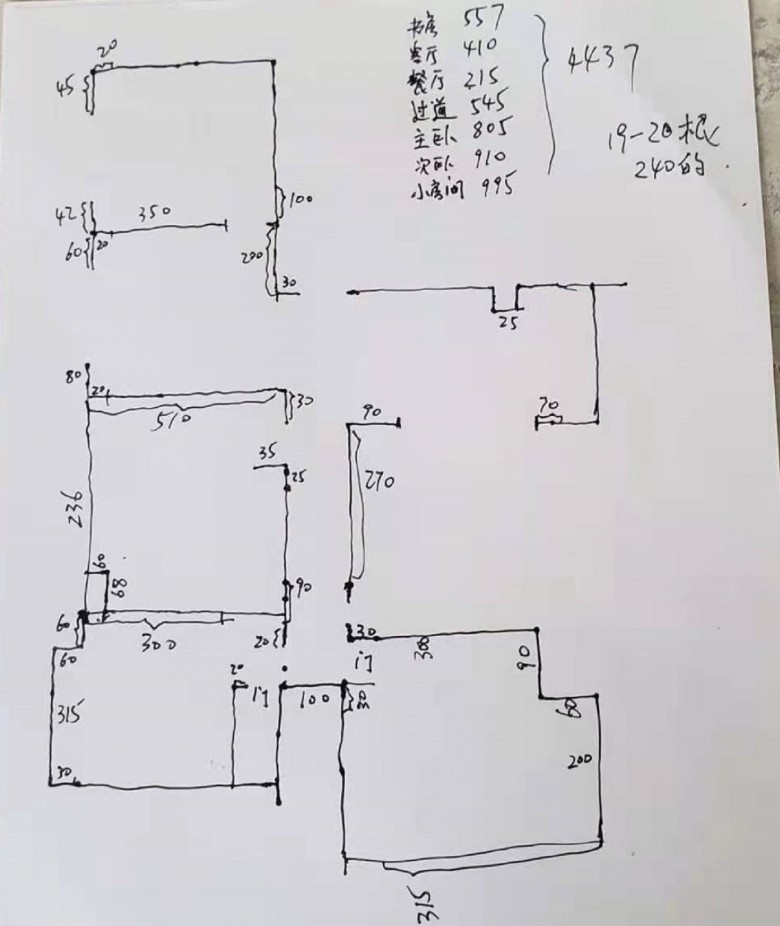 书房 557
客厅 410
餐厅 215
过道 545
主卧 805
次卧 910
小房间 995
4437
19-20根
240的
20
45
42
350
60
20
100
200
30
25
80
20
510
30
90
70
35
25
270
236
60
68
90
60
300
20
30
60
门
300
90
20
门
100
30
60
315
200
30
315